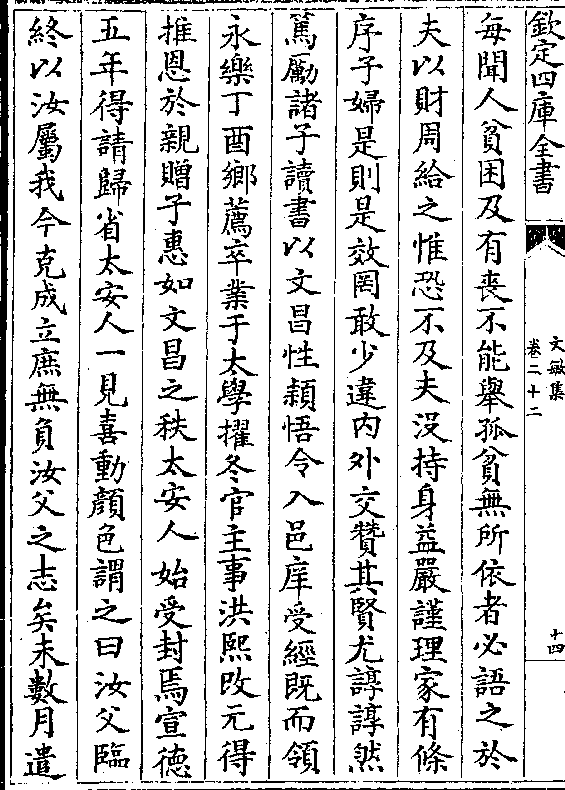 欽定四庫全書
文敏集
卷二十二
十四
每聞人貧困及有喪不能舉孤貧無所依者必語之於
夫以財周給之惟恐不及夫没持身益嚴謹理家有條
序子婦是則是效罔敢少違内外交贊其賢尤諄諄然
篤勵諸子讀書以文昌性穎悟令入邑庠受經既而領
永樂丁酉鄉薦卒業于太學擢冬官主事洪熙改元得
推恩於親贈子惠如文昌之秩太安人始受封焉宣德
五年得請歸省太安人一見喜動顔色謂之曰汝父臨
終以汝屬我今克成立庶無負汝父之志矣未數月遣